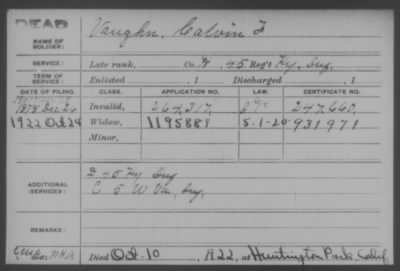 DEAD
NAME OF SOLDIER: Vaughn, Calvin F
SERVICE: Late rank, Co. H, 45 Reg't Ky. Inf.
TERM OF SERVICE: Enlisted , 1 Discharged , 1
DATE OF FILING. CLASS. APPLICATION NO. LAW. CERTIFICATE NO.
1878 Dec 26 Invalid, 264,317, 247,660,
1922 Oct 24 Widow, 1195889 5-1-20 931971
Minor,
ADDITIONAL SERVICES: D 45 Ky Inf
C 5 W Va. Inf.
REMARKS:
Died Oct. 10, 1922, at Huntington Park, Calif.